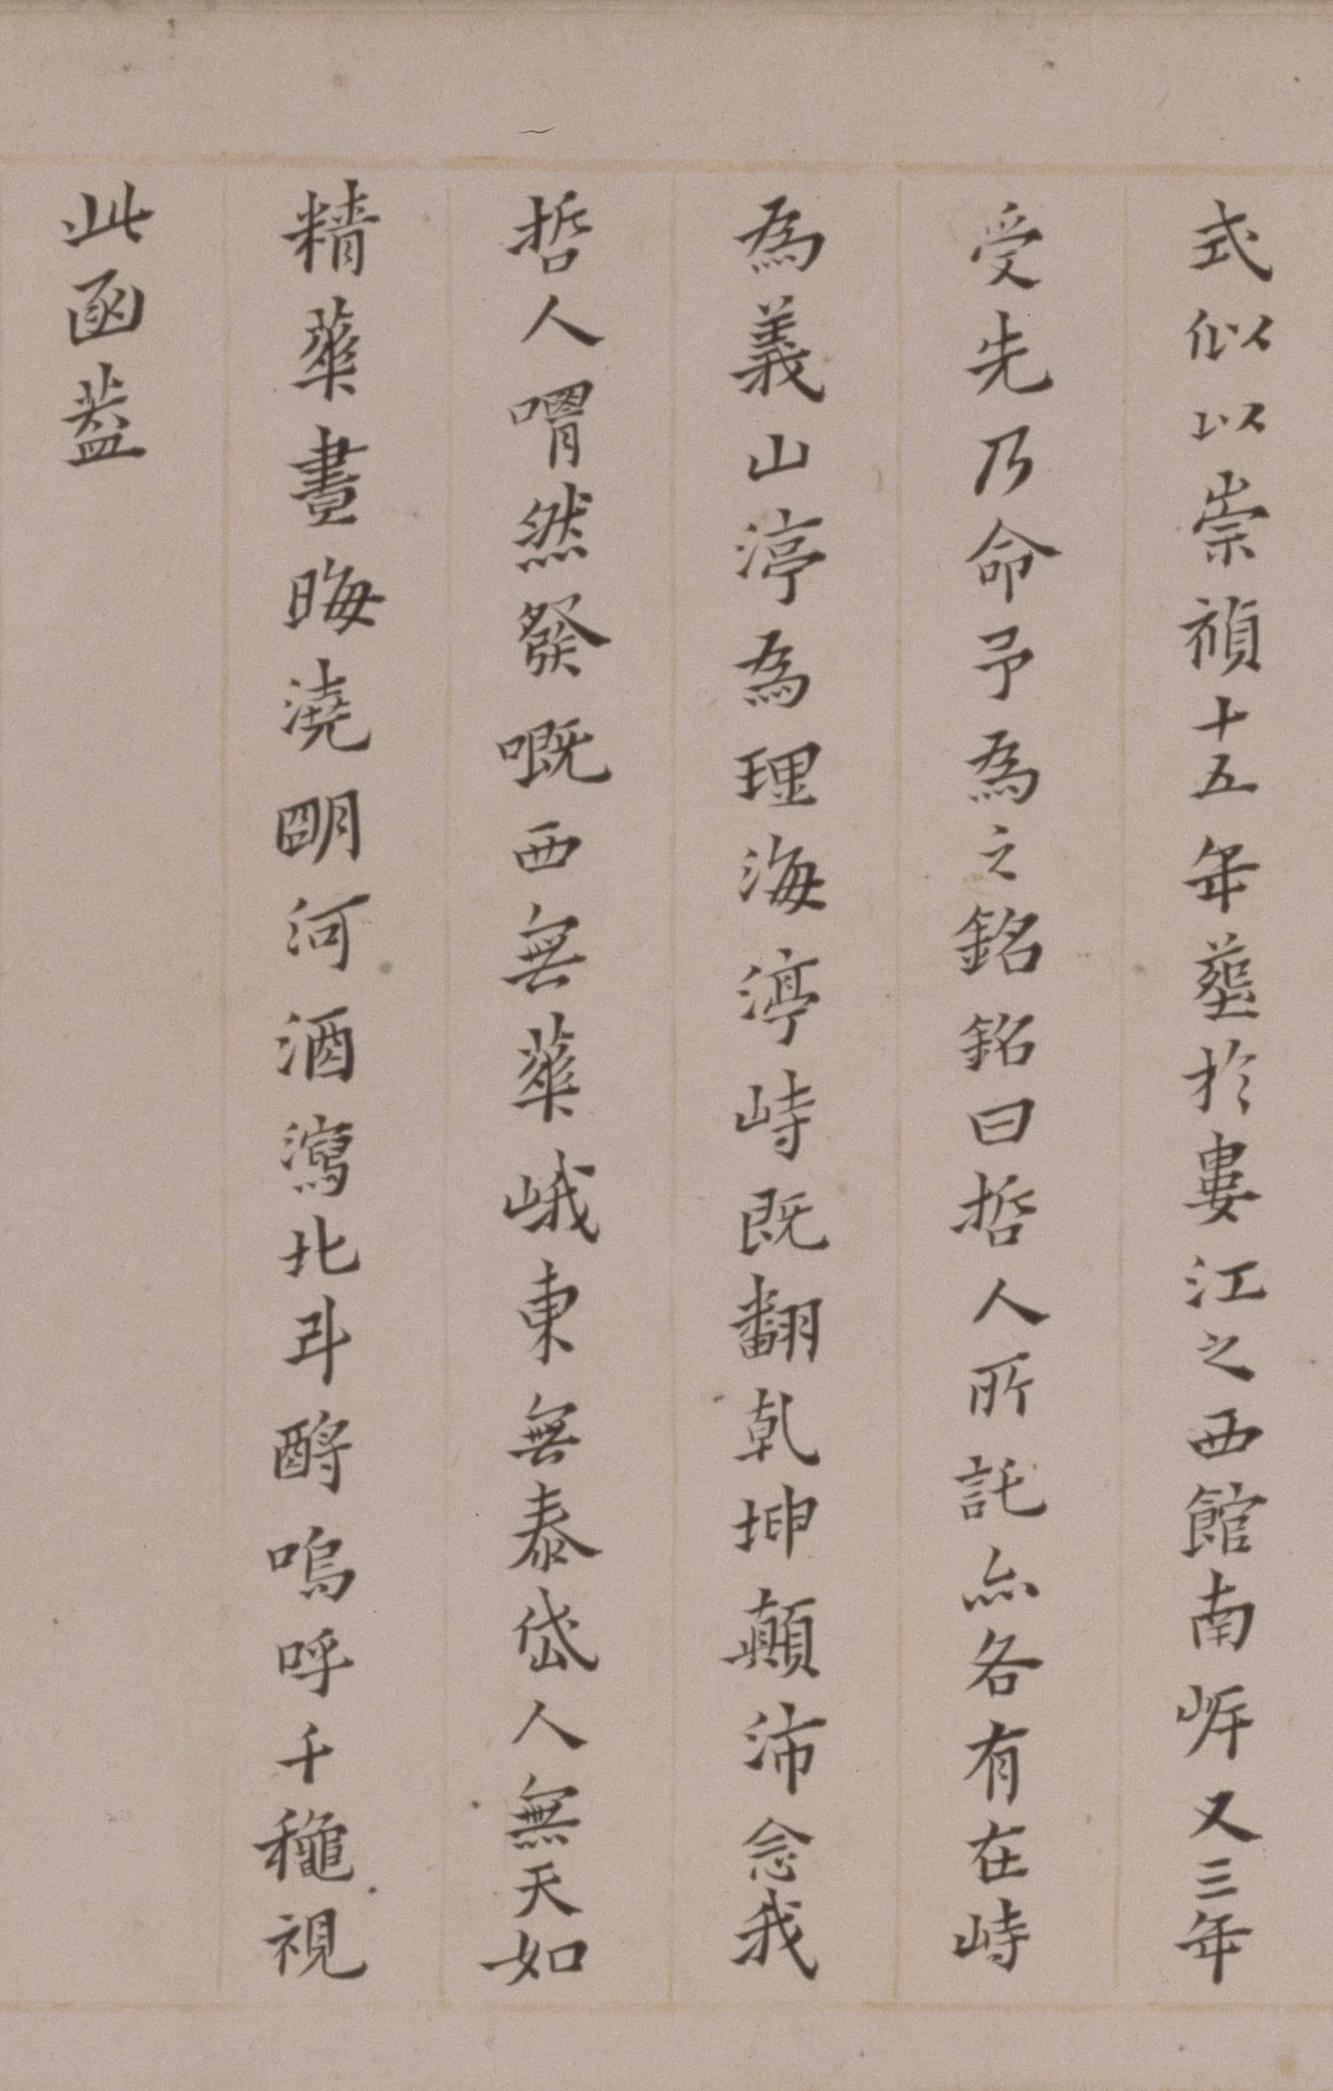 式似以崇禎十五年塟於婁江之西館南岸又三年
受先乃命予為之銘銘曰哲人所託亦各有在峙
為義山渟為理海渟峙既翻乾坤顛沛念我
哲人喟然發嘅西無華峨東無泰岱人無天如
精華晝晦澆明河酒瀉北斗酹嗚呼千龝視
此函蓋